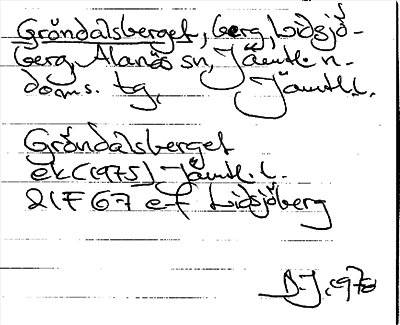 Gröndalsberget, berg, Lidsjö-
berg, Alanäs sn, Jämtl. n.
doms. tg, Jämtl. l.
Gröndalsberget
ek (1975) Jämtl. l.
21F 67 e-f Lidsjöberg
B.J. 1978